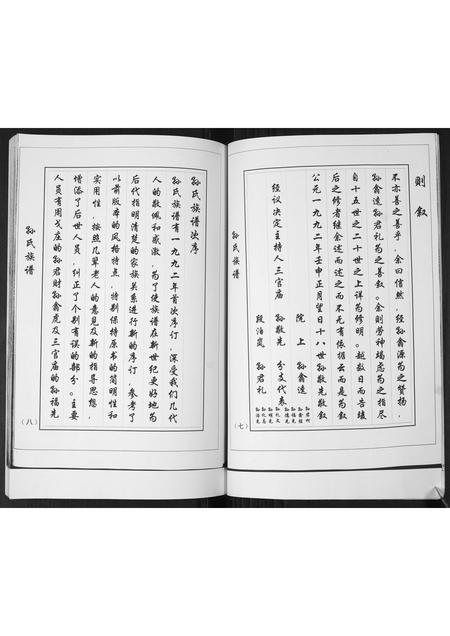 则叙
不亦善之善乎，余曰信然，经孙禽源为之督扬，
孙禽远孙君礼为之善叙。余则劳神竭虑为之指尽
自十五世之二十世之上详为修明。越数日而告竣
后之修者继余述而述之而不无有依据云而是为叙
公元一九九二年壬申正月望日十八世孙敬先敬叙
经议决定主持人三官庙 孙敬先 分支代表
院上 孙禽远
段泊岚 孙君礼
孙氏族谱
（七）
孙氏族谱次序
孙氏族谱有一九九二年首次序订，深受我们几代
人的敬佩和感激，为了使族谱在新世纪更好地为
后代指明清楚的家族关系进行新的序订，参考了
以前版本的风格特点，特别保持原书的简明性和
实用性，按照几辈老人的意见及新的指导思想，
增添了后世人员，纠正了个别有误的部分。主要
人员有周戈庄的孙君财孙禽虎及三官庙的孙福先
孙氏族谱
（八）